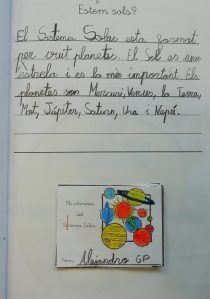 Estem sols?
El Sistema Solar esta format
per vuit planetes. El Sol es una
estrela i es la més important. Els
planetes son Mercuri, Venus, la Terra,
Mart, Júpiter, Saturn, Ura i Neptú.
Els planetes
del
Sistema Solar
Nom: Alejandro GP